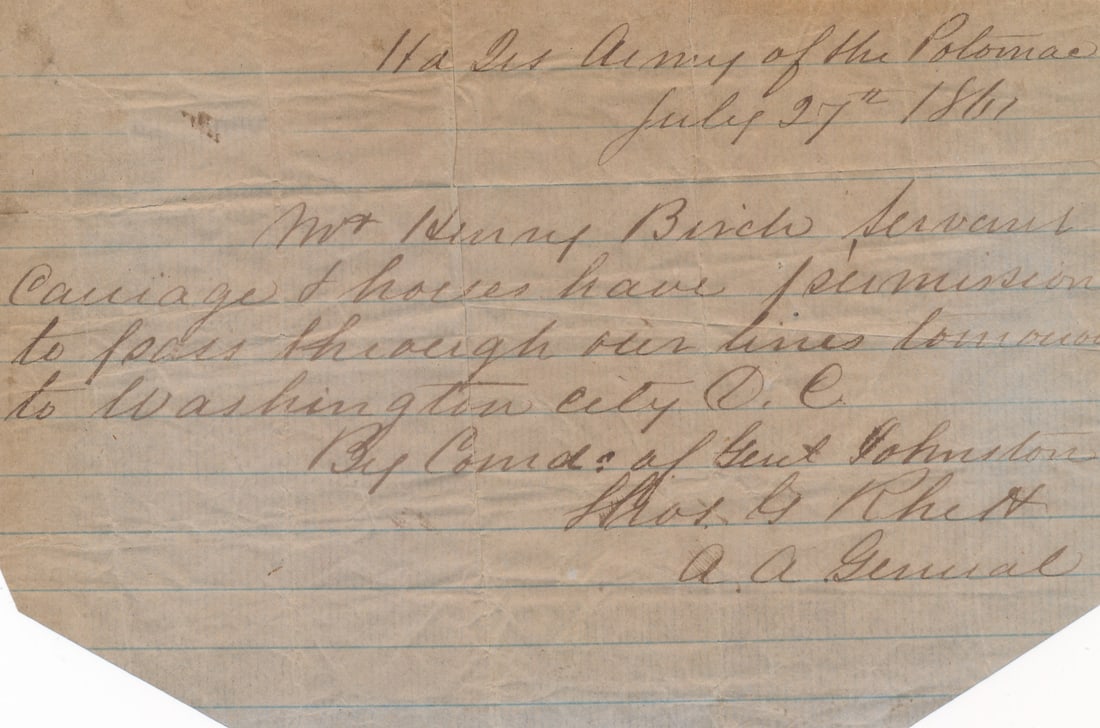 Hd Qrs Army of the Potomac
July 27th 1861
Mr Henry Birch servant
Carriage & horses have permission
to pass through our lines tomorrow
to Washington city D. C.
By Comd: of Genl Johnston
Thos. G Rhett
A A General